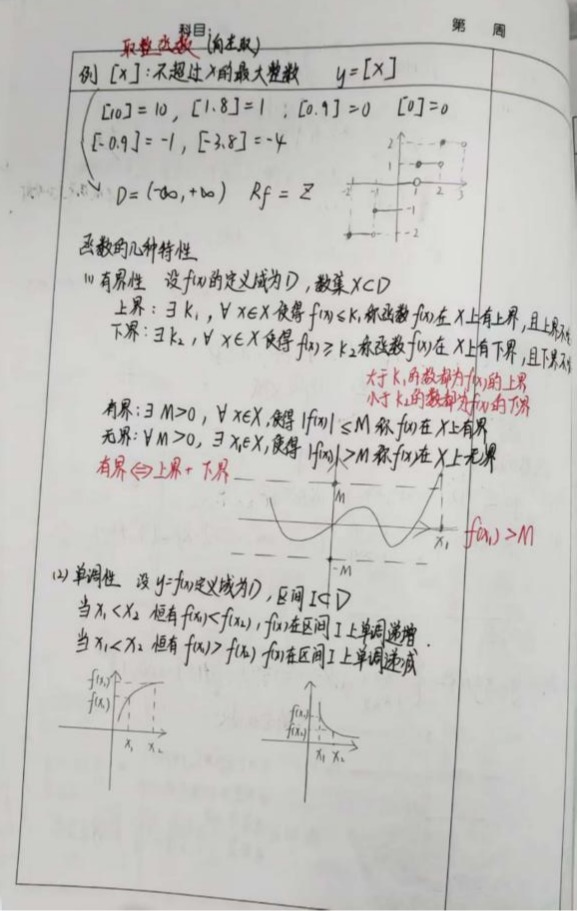 科目: 第 周
取整函数 (向左取)
例 [x]:不超过x的最大整数 y=[x]
[10]=10, [1.8]=1 ; [0.9]=0 [0]=0
[-0.9]=-1, [-3.8]=-4
D=(-∞,+∞) Rf=Z
2
1
-2 -1 1 2 3
-1
-2
函数的几种特性
(1) 有界性 设f(x)的定义域为D, 数集X⊂D
上界:∃K₁, ∀x∈X 使得f(x)≤K₁称函数f(x)在X上有上界,且上界不
下界:∃K₂, ∀x∈X 使得f(x)≥K₂称函数f(x)在X上有下界,且下界不
大于K₁的数都为f(x)的上界
小于K₂的数都为f(x)的下界
有界:∃M>0, ∀x∈X,使得|f(x)|≤M称f(x)在X上有界
无界:∀M>0, ∃x₁∈X,使得|f(x)|>M称f(x)在X上无界
有界⇔上界+下界
M
x₁ f(x₁)>M
-M
(2) 单调性 设y=f(x)定义域为D, 区间I⊂D
当x₁<x₂ 恒有f(x₁)<f(x₂), f(x)在区间I上单调递增.
当x₁<x₂ 恒有f(x₁)>f(x₂) f(x)在区间I上单调递减
f(x₂)
f(x₁)
x₁ x₂
f(x₁)
f(x₂)
x₁ x₂